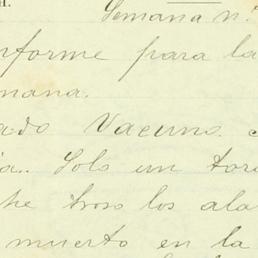 Semana n.
nforme para la
mana.
ado Vacuno.
Solo un toro
los ala
muerto en la